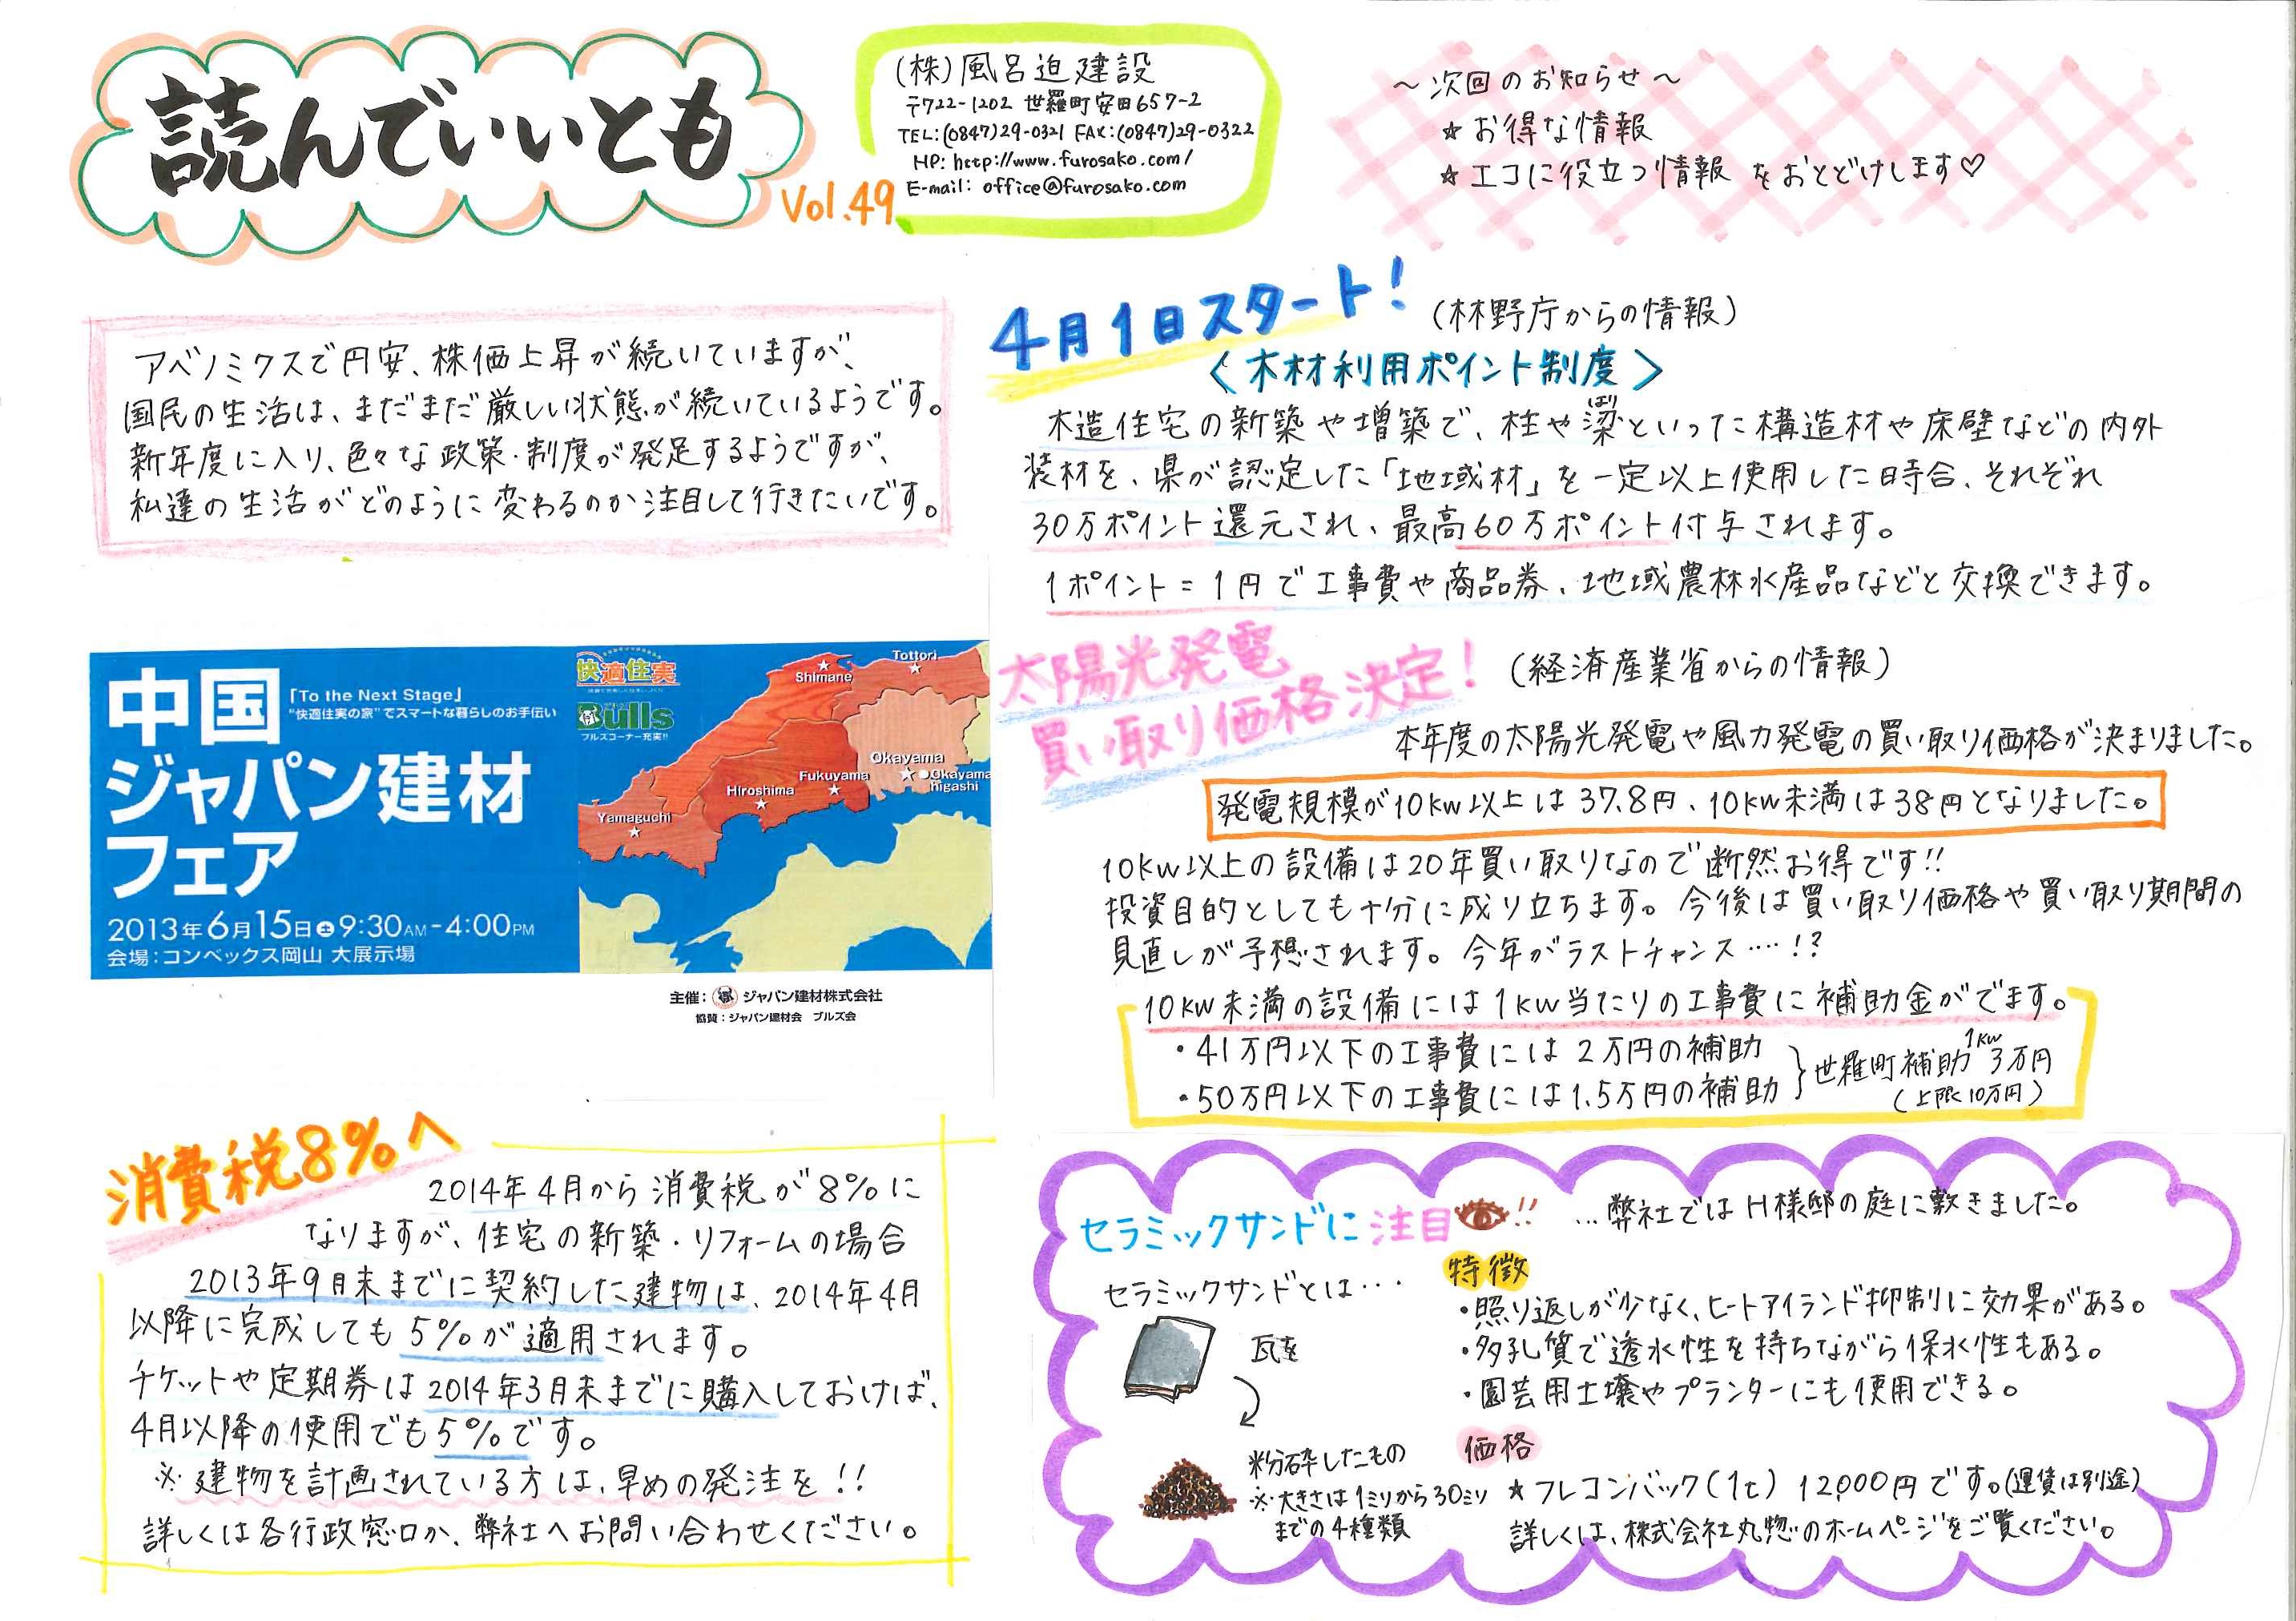 読んでいいとも
Vol.49
(株)風呂迫建設
〒722-1202 世羅町安田657-2
TEL:(0847)29-0321 FAX:(0847)29-0322
HP: http://www.furosako.com/
E-mail: office@furosako.com
～次回のお知らせ～
☆お得な情報
☆エコに役立つ情報 をおとどけします♡
アベノミクスで円安、株価上昇が続いていますが、
国民の生活は、まだまだ厳しい状態が続いているようです。
新年度に入り、色々な政策・制度が発足するようですが、
私達の生活がどのように変わるのか注目して行きたいです。
中国
「To the Next Stage」
"快適住実の家"でスマートな暮らしのお手伝い
ジャパン建材
フェア
2013年6月15日土9:30AM-4:00PM
会場:コンベックス岡山 大展示場
快適住実
Bulls
ブルズコーナー充実!!
Shimane
Tottori
Okayama
Okayama
higashi
Fukuyama
Hiroshima
Yamaguchi
主催: ジャパン建材株式会社
協賛:ジャパン建材会 ブルズ会
消費税8%へ
2014年4月から消費税が8%に
なりますが、住宅の新築・リフォームの場合
2013年9月末までに契約した建物は、2014年4月
以降に完成しても5%が適用されます。
チケットや定期券は2014年3月末までに購入しておけば、
4月以降の使用でも5%です。
※建物を計画されている方は、早めの発注を!!
詳しくは各行政窓口か、弊社へお問い合わせください。
4月1日スタート! (林野庁からの情報)
<木材利用ポイント制度>
はり
木造住宅の新築や増築で、柱や梁といった構造材や床壁などの内外
装材を、県が認定した「地域材」を一定以上使用した時合、それぞれ
30万ポイント還元され、最高60万ポイント付与されます。
1ポイント=1円で工事費や商品券、地域農林水産品などと交換できます。
太陽光発電
買い取り価格決定! (経済産業省からの情報)
本年度の太陽光発電や風力発電の買い取り価格が決まりました。
発電規模が10kw以上は37.8円、10kw未満は38円となりました。
10kw以上の設備は20年買い取りなので断然お得です!!
投資目的としても十分に成り立ちます。今後は買い取り価格や買い取り期間の
見直しが予想されます。今年がラストチャンス‥‥!?
10kw未満の設備には1kw当たりの工事費に補助金がでます。
・41万円以下の工事費には2万円の補助
・50万円以下の工事費には1.5万円の補助
世羅町補助 1kw 3万円
(上限10万円)
セラミックサンドに注目!! …弊社ではH様邸の庭に敷きました。
セラミックサンドとは‥・
瓦を
粉砕したもの
※大きさは1ミリから30ミリ
までの4種類
特徴
・照り返しが少なく、ヒートアイランド抑制に効果がある。
・多孔質で透水性を持ちながら保水性もある。
・園芸用土壌やプランターにも使用できる。
価格
☆フレコンバック(1t) 12,000円です。(運賃は別途)
詳しくは、株式会社丸惣のホームページをご覧ください。